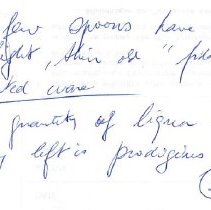 few spoons have
ight, thin old "
ted ware
quantity of liquor
left is prodigious